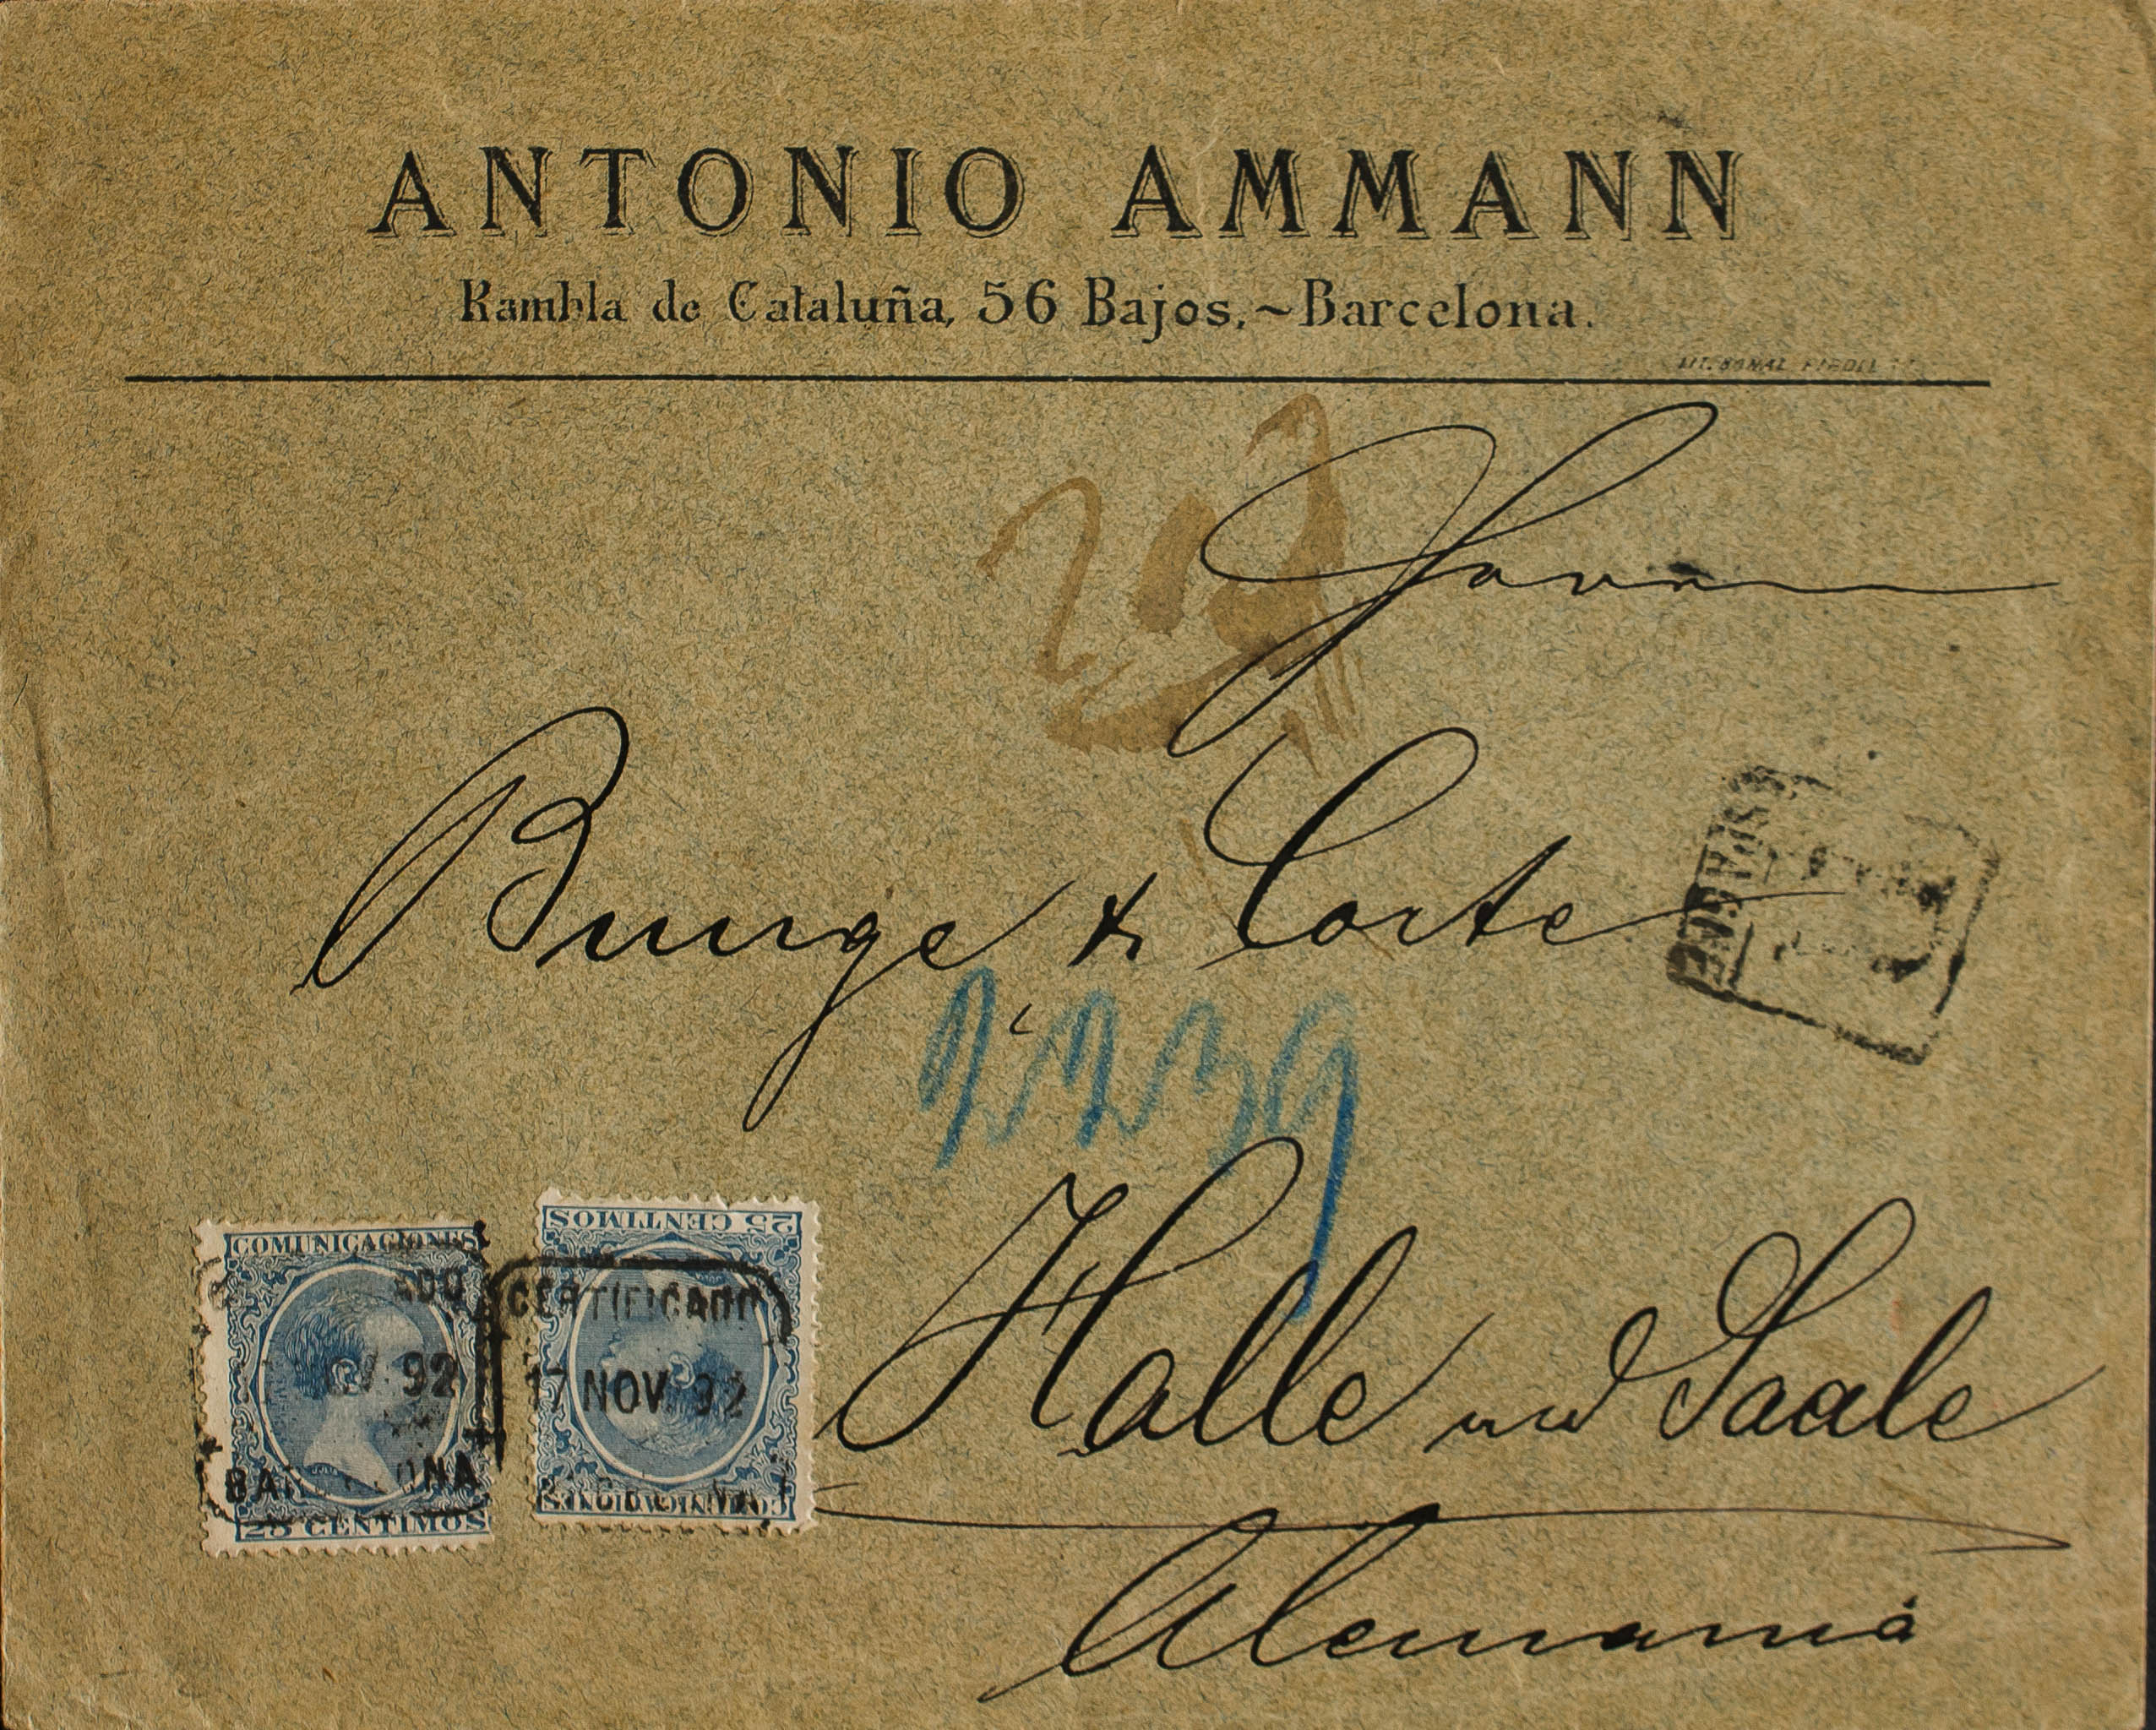 ANTONIO AMMANN
Rambla de Cataluña, 56 Bajos.~Barcelona.
Bunge & Corte
2239
Halle und Saale
Alemania
COMUNICACIONES
92
BARCELONA
25 CENTIMOS
25 CENTIMOS
CERTIFICADO
17 NOV. 92
COMUNICACIONES